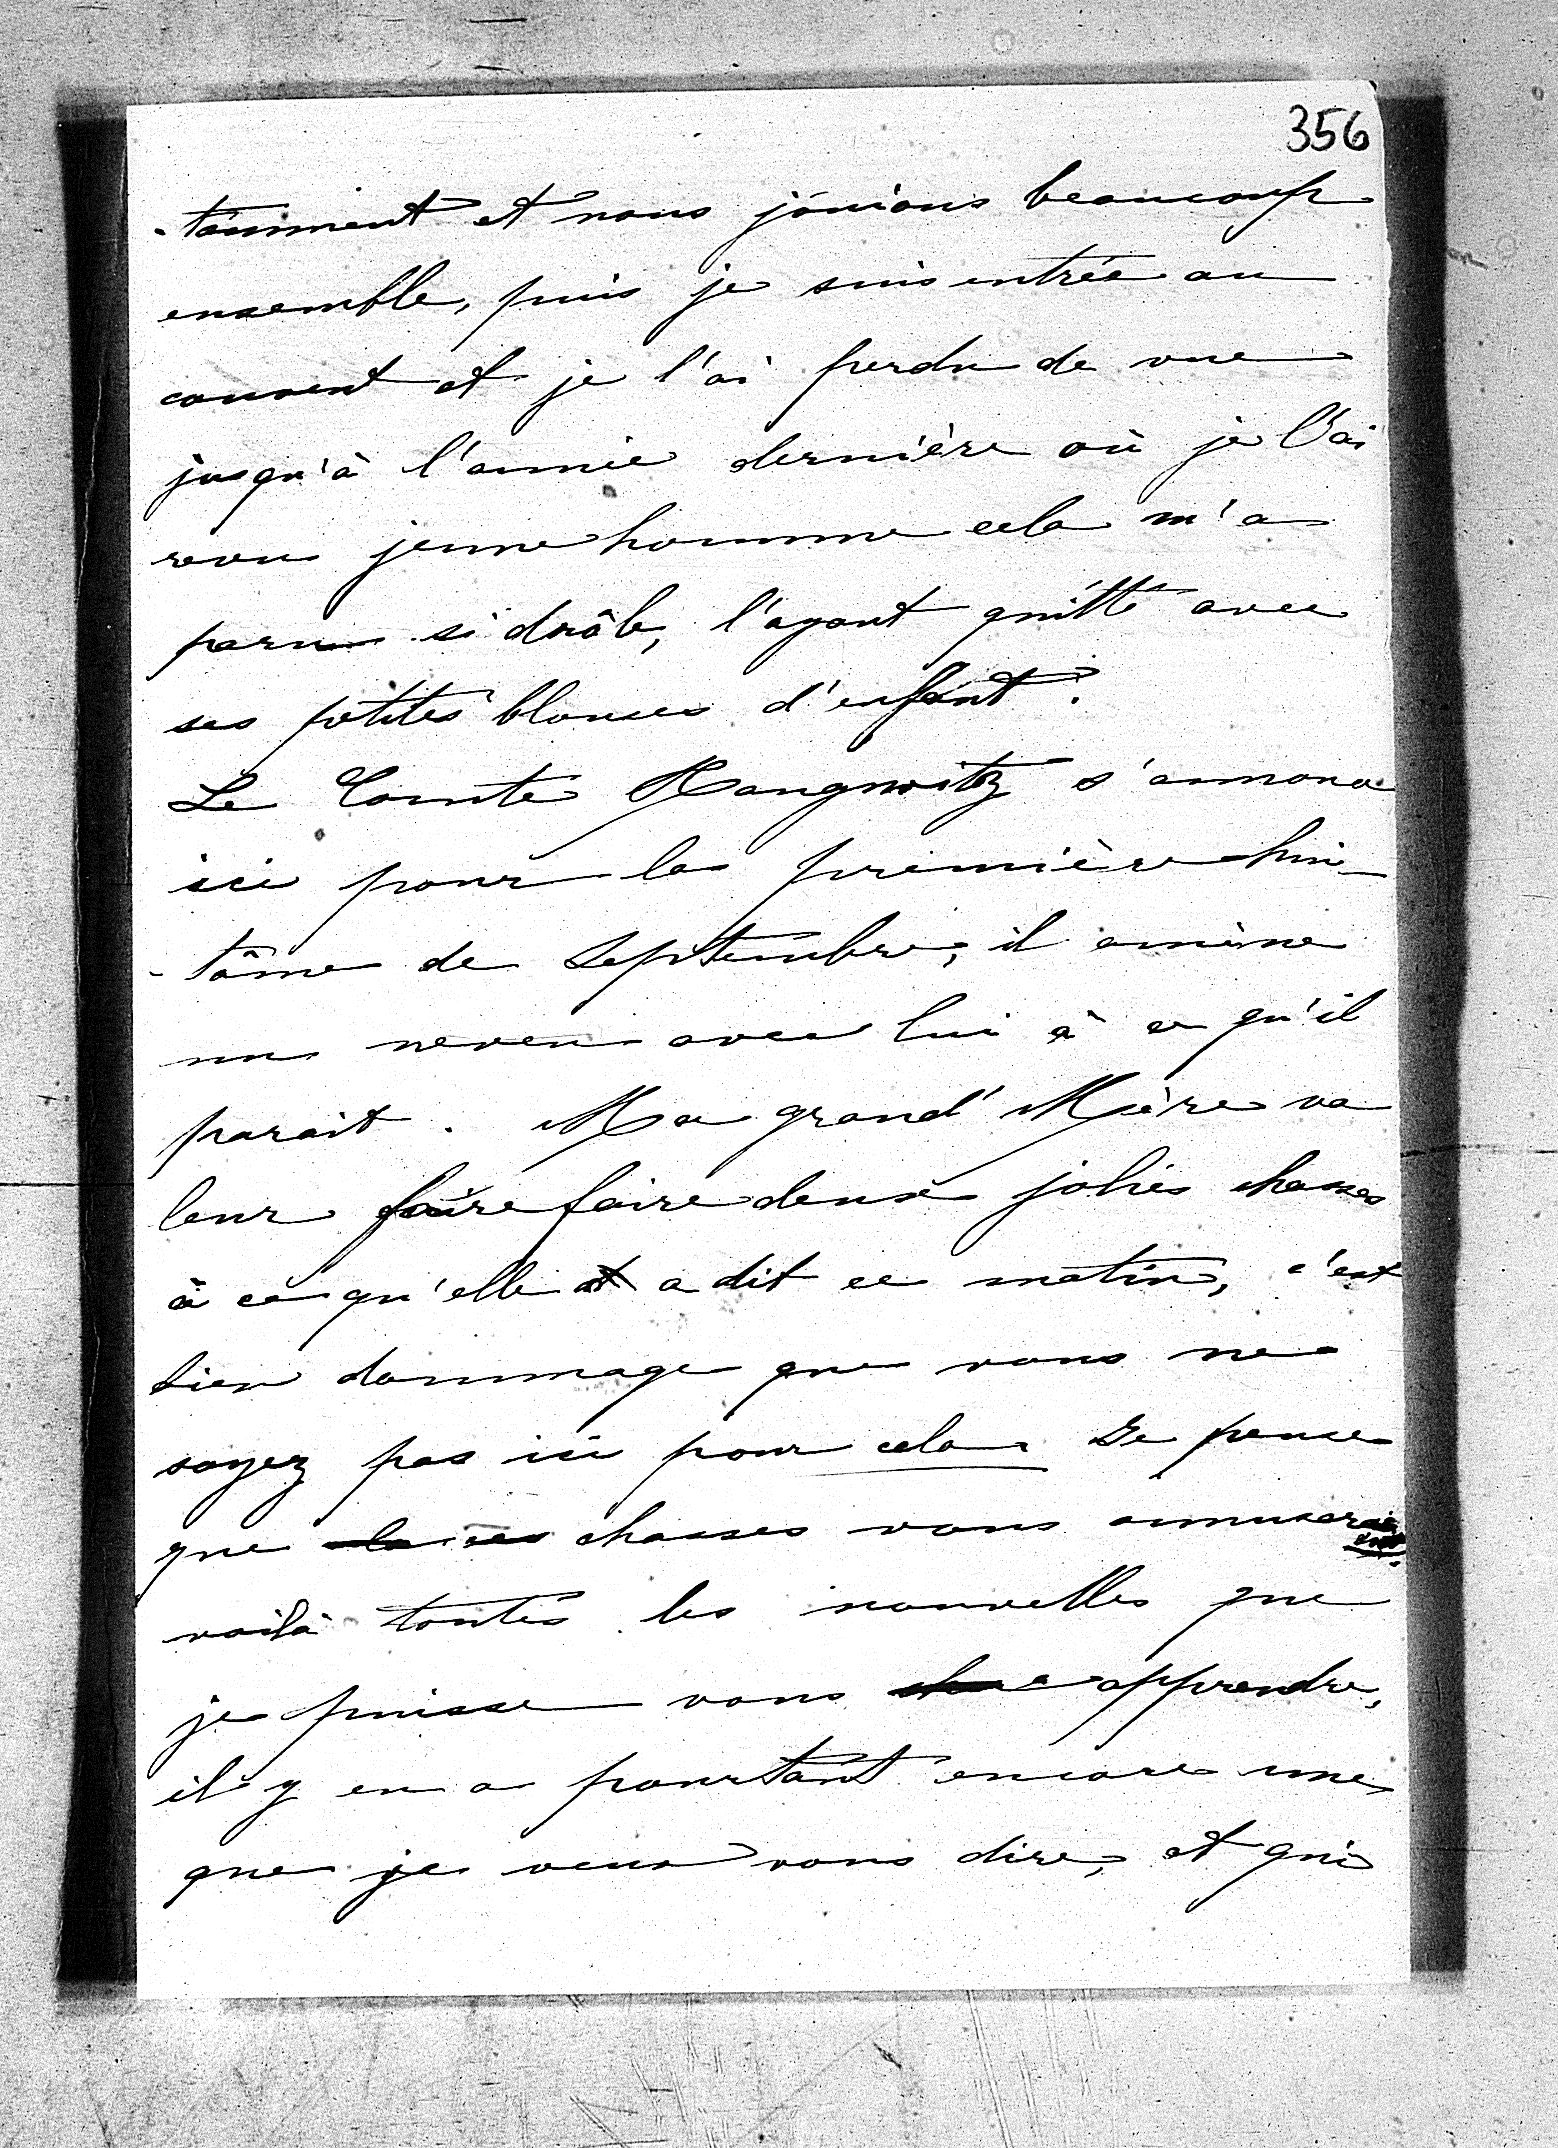 356
-tamment et nous jouions beaucoup
ensemble, puis je suis entrée au
couvent et je l'ai perdu de vue
jusqu'à l'année dernière où je l'ai
revu jeune homme cela m'a
paru si drôle, l'ayant quitté avec
ses petites blouses d'enfant.
Le Comte Haugwitz s'annonce
ici pour la première huit-
-taine de Septembre, il amène
un neveu avec lui à ce qu'il
parait. Ma grand' Mère va
leur faire faire deux jolies chasses
à ce qu'elle a dit ce matin, c'est
bien dommage que vous ne
soyez pas ici pour cela. Je pense
que ces chasses vous amuseraient.
voilà toutes les nouvelles que
je puisse vous apprendre,
il y en a pourtant encore une
que je veux vous dire, et qui